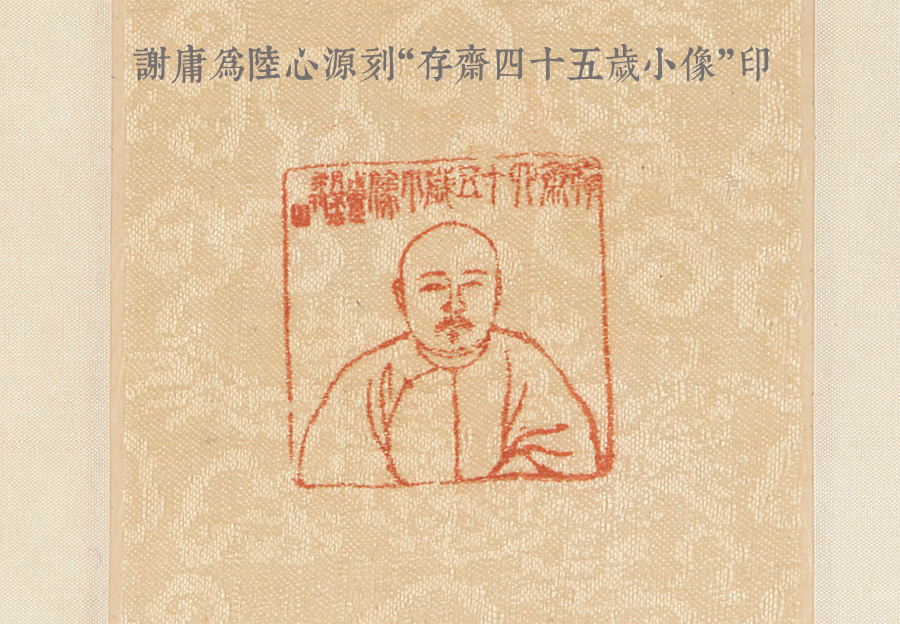 謝庸爲陸心源刻“存齋四十五歲小像”印
存齋四十五歲小像